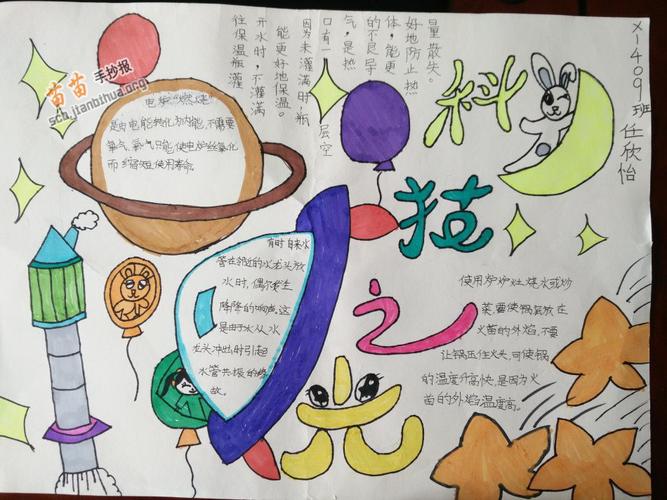 苗苗手抄报
scb.jianbihua.org
科技之光
X1409班 任欣怡
往保温瓶灌
开水时,不灌满
能更好地保温。
因为未灌满时,瓶
口有一层空
气,是热
的不良导
体,能更
好地防止热
量散失。
电炉"燃烧"
是由电能转化为内能,不需要
氧气,氧气只能使电炉丝氧化
而缩短使用寿命。
有时自来水
管在邻近的水龙头放
水时,偶尔发生
的响声。这
是由于水从水
龙头冲出时引起
水管共振的缘
故。
使用炉炉灶烧水或炒
菜,要使锅底放在
火苗的外焰,不要
让锅压住火头,可使锅
的温度升高快,是因为火
苗的外焰温度高。